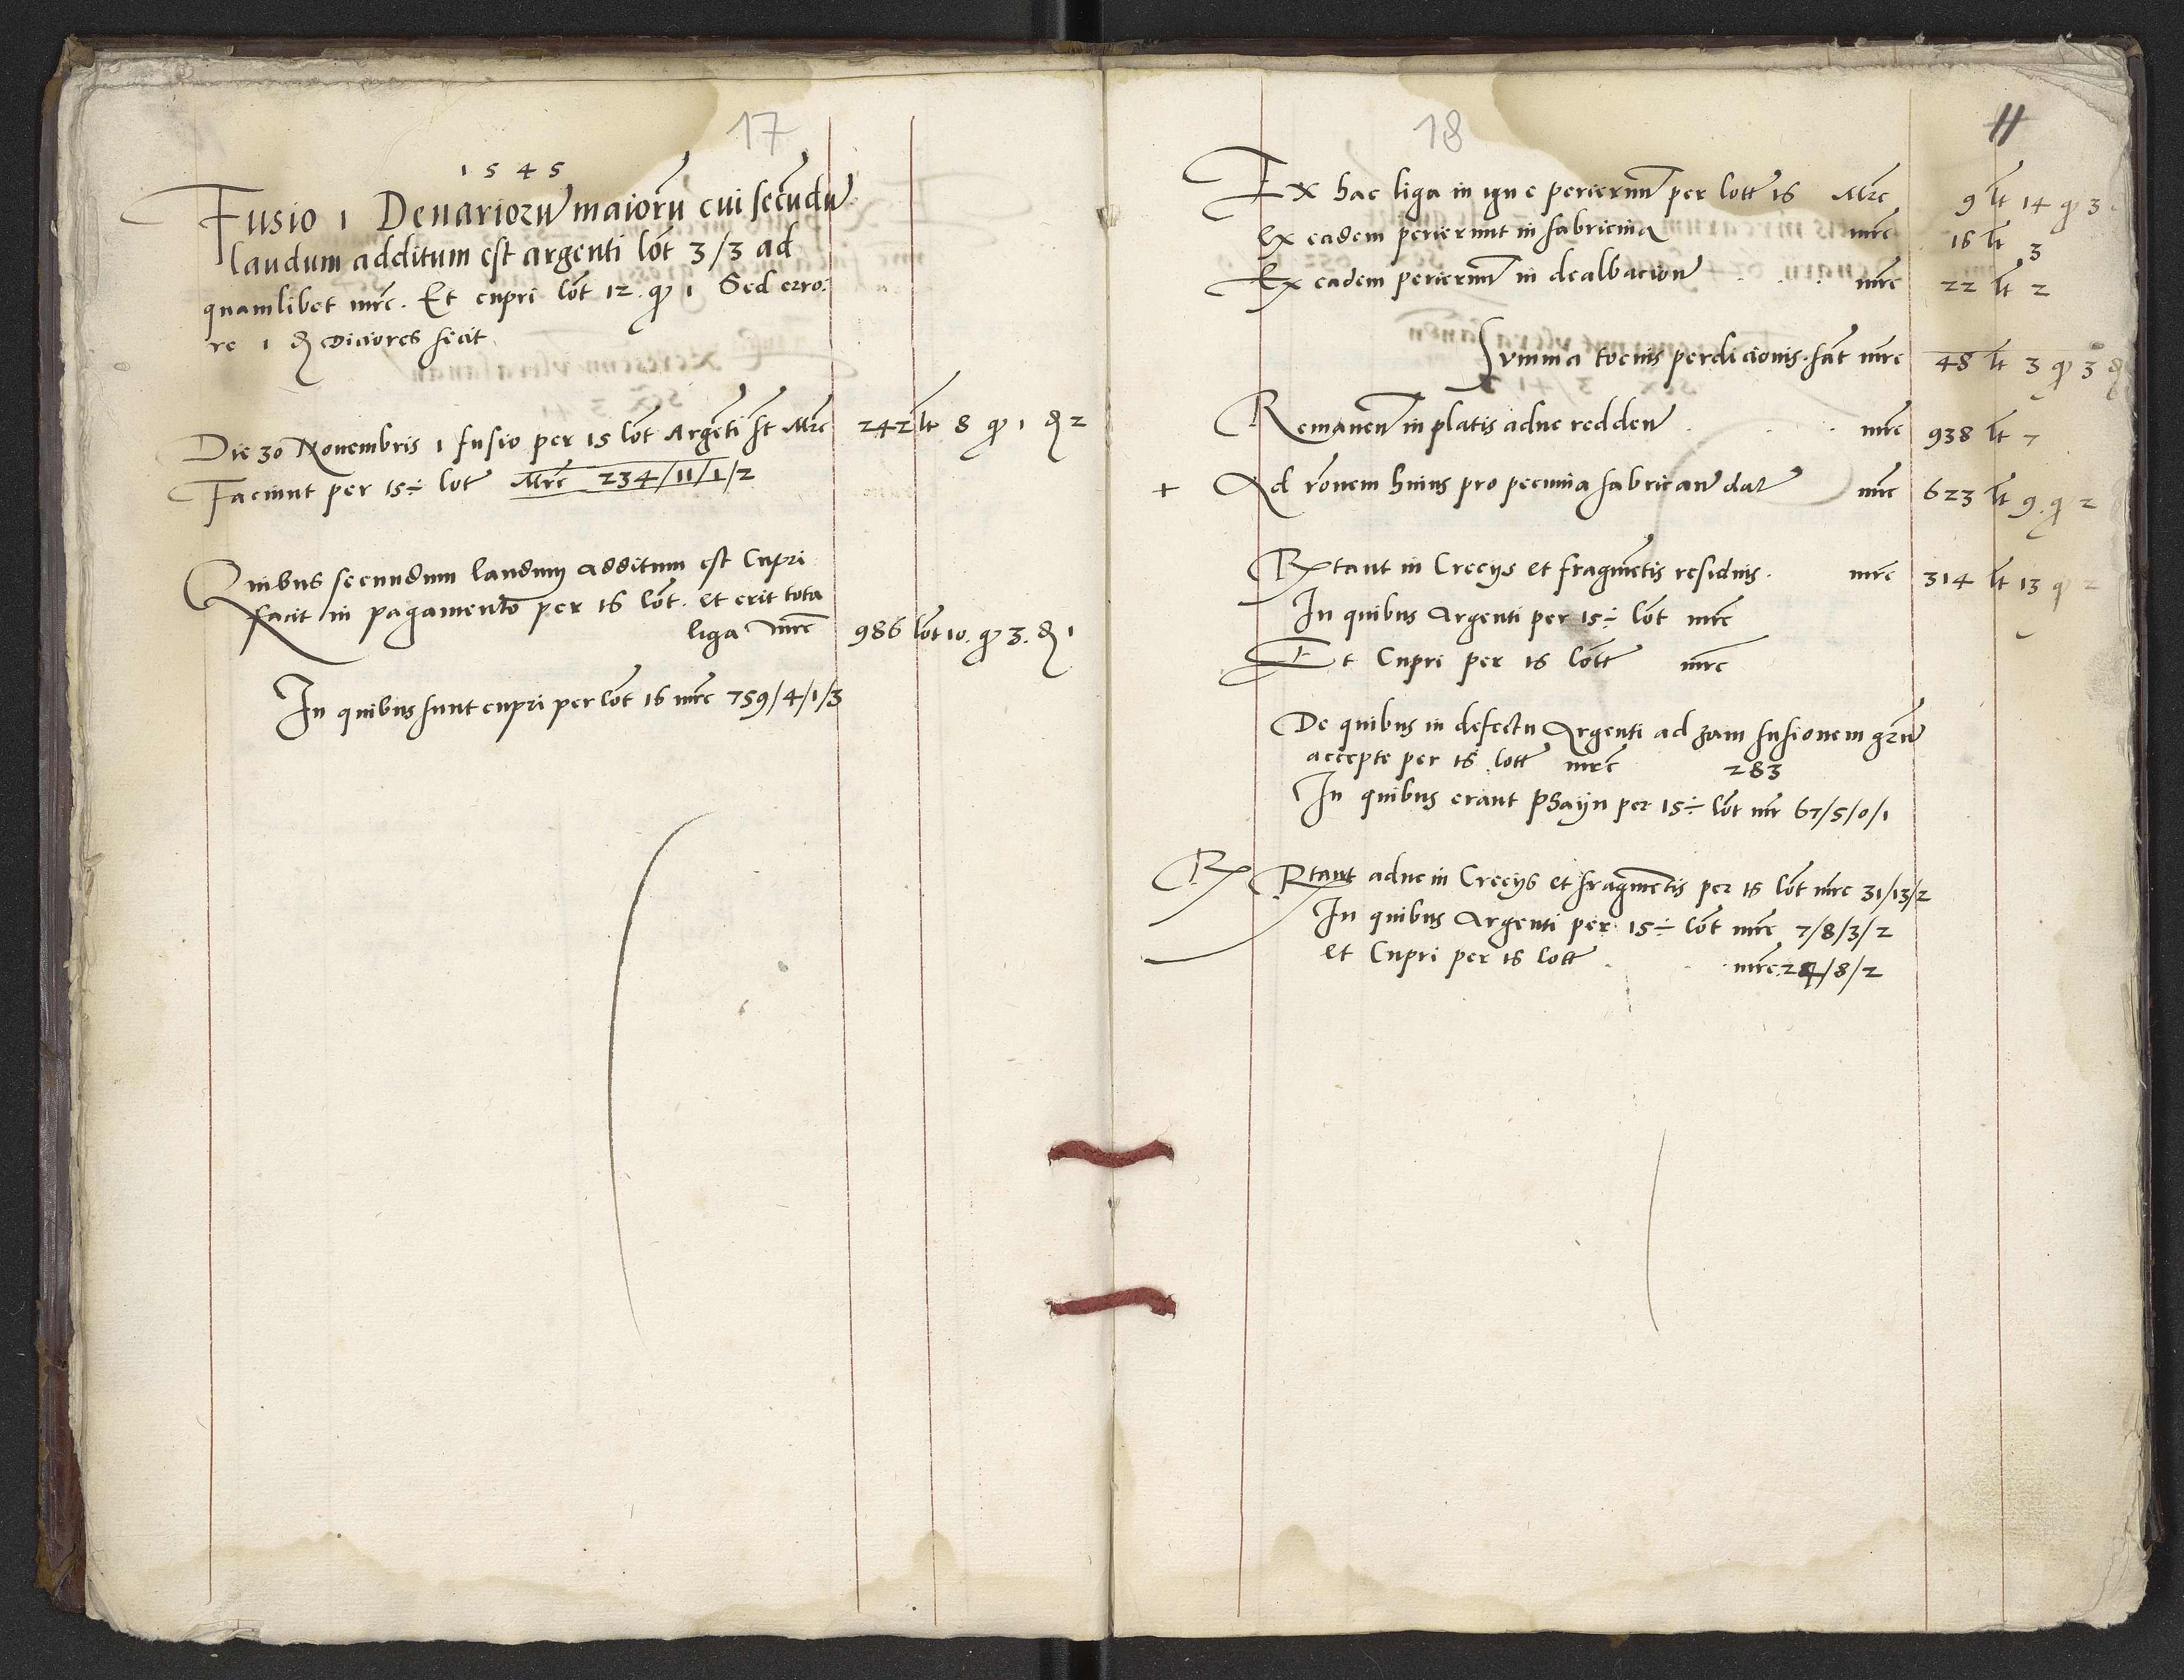 17
1545
Fusio 1 Denariorũ maiorũ cui secũdũ
laudum additum est argenti lot 3/3 ad
quamlibet mrc. Et cupri lot 12. q 1 Sed erro:
re 1 ₰ diciores fecit
Die 30 Novembris 1 fusio per 15 lot Argẽti st Mrc 242 lt 8 q 1 ₰ 2
Faciunt per 15÷ lot Mrc 234/11/1/2
Quibus secundum laudum additum est Cupri
facit in pagamento per 16 lot. et erit tota
liga mrc 986 lot 10. q 3. ₰ 1
In quibus sunt cupri per lot 16 mrc 759/4/1/3
18
11
Ex hac liga in igne perierunt per lott 16 Mrc 9 lt 14 q 3
Ex eadem perierunt in fabricina mrc 16 lt 3
Ex eadem perierunt in dealbacione mrc 22 lt 2
Summa tocius perdicionis fat mrc 48 lt 3 q 3 ₰
Remanen in platis adhuc redden mrc 938 lt 7
+ Ad ronem huius pro pecunia fabrican dat mrc 623 lt 9. q 2
Rxtant in Crecys et fragmẽtis residuis. mrc 314 lt 13 q 2
In quibus Argenti per 15÷ lot mrc
Et Cupri per 16 lott mrc
De quibus in defectu Argenti ad 3am fusionem
accepte per 16 lott mrc 283
In quibus erant per 15÷ lot mr 67/5/0/1
Rx Rtant adhuc in Crecys et fragmẽtis per 16 lot mrc 31/13/2
In quibus Argenti per 15÷ lot mrc 7/8/3/2
et Cupri per 16 lott mrc. 24/8/2